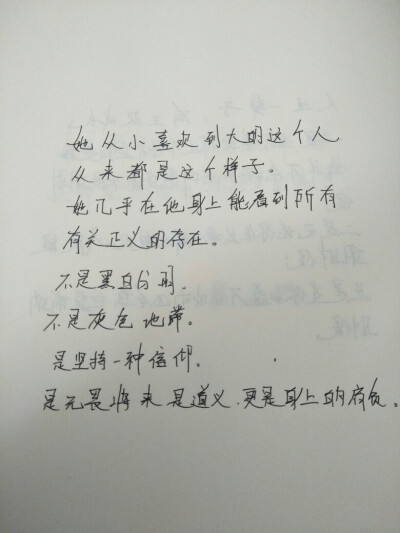 她从小喜欢到大的这个人
从来都是这个样子。
她几乎在他身上能看到所有
有关正义的存在。
不是黑白分明。
不是灰色地带。
是坚持一种信仰。
是无畏将来是道义.更是身上的肩负。